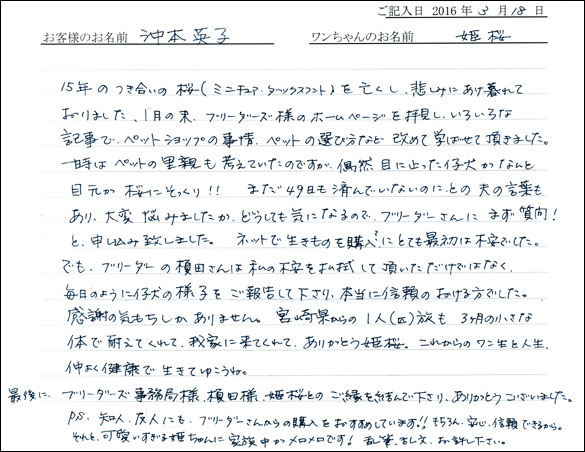 ご記入日 2016 年 3 月 18 日
お客様のお名前 沖本英子 ワンちゃんのお名前 姫桜
15年のつき合いの桜(ミニチュア・ダックスフント)を亡くし、悲しみにあけ暮れて
おりました、1月の末、ブリーダーズ様のホームページを拝見し、いろいろな
記事で、ペットショップの事情、ペットの選び方など 改めて学ばせて頂きました。
一時はペットの里親も考えていたのですが、偶然目に止った仔犬がなんと
目元が桜にそっくり!! まだ49日も済んでいないのに、との夫の言葉も
あり、大変悩みましたが、どうしても気になるので、ブリーダーさんにまず質問!
と、申し込み致しました。 ネットで生きものを購入?にとても最初は不安でした。
でも、ブリーダーの横田さんは私の不安を払拭して頂いただけではなく、
毎日のように仔犬の様子をご報告して下さり、本当に信頼のおける方でした。
感謝の気もちしかありません。宮崎県からの1人(匹)旅も 3ヶ月の小さな
体で耐えてくれて、我家に来てくれて、ありがとう姫桜。これからのワン生と人生、
仲よく健康で生きてゆこうね。
最後に、ブリーダーズ事務局様、横田様、姫桜とのご縁を結んで下さり、ありがとうございました。
P.S. 知人、友人にも、ブリーダーさんからの購入をおすすめしています!! もちろん、安心、信頼できるから。
それと、可愛いすぎる姫ちゃんに家族中がメロメロです! 乱筆、乱文、お許し下さい。